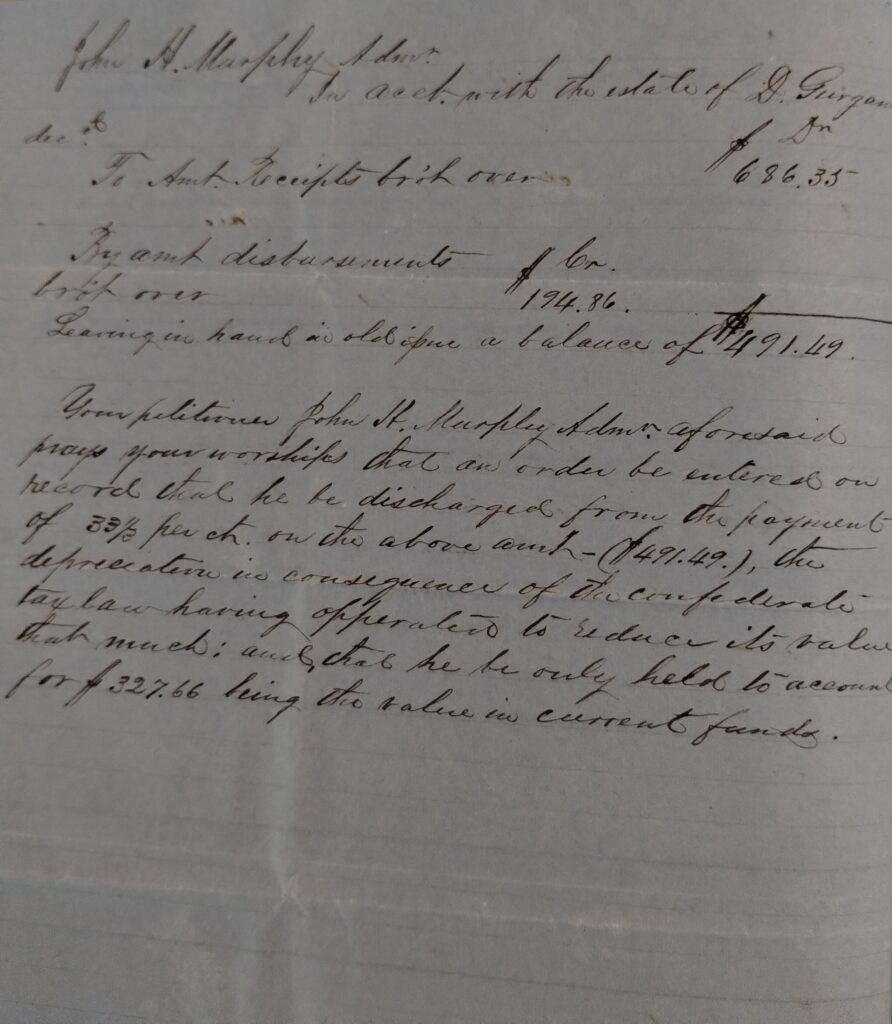 John H. Murphy Admr.
In acct. with the estate of D. Gurgan
dec.d
$ Dr
To Amt. Receipts bro't over 686.35
By amt disbursements $ Cr.
bro't over 194.86.
Leaving in hand in old issue a balance of $491.49.
Your petitioner John H. Murphy Admr. aforesaid
prays your worships that an order be entered on
record that he be discharged from the payment
of 33⅓ per ct. on the above amt – ($491.49.), the
depreciation in consequence of the confederate
tax law having opperated to reduce its value
that much; and, that he be only held to account
for $327.66 being the value in current funds.